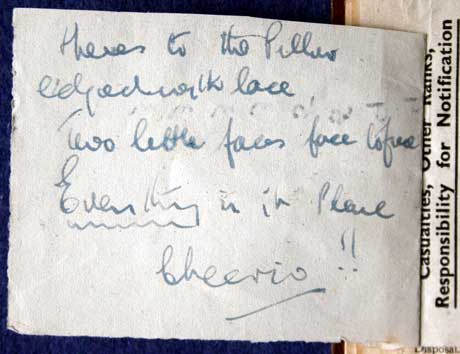 Heres to the Pillow
edged with lace
Two little faces face to face
Everything in its Place
Cheerio !!
Casualties, Other Ranks,
Responsibility for Notification
Disposal.